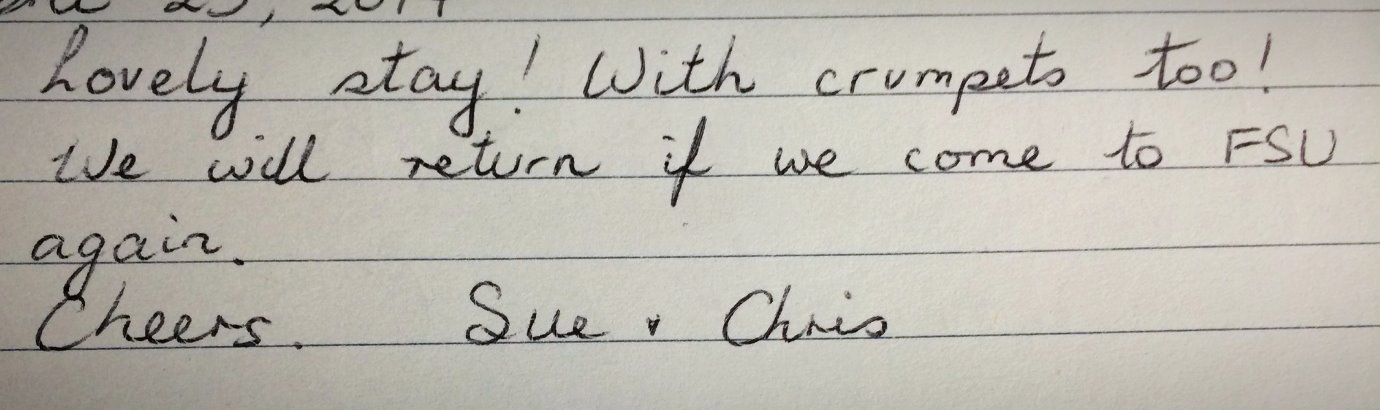 23, 2014
Lovely stay! With crumpets too!
We will return if we come to FSU
again.
Cheers. Sue & Chris